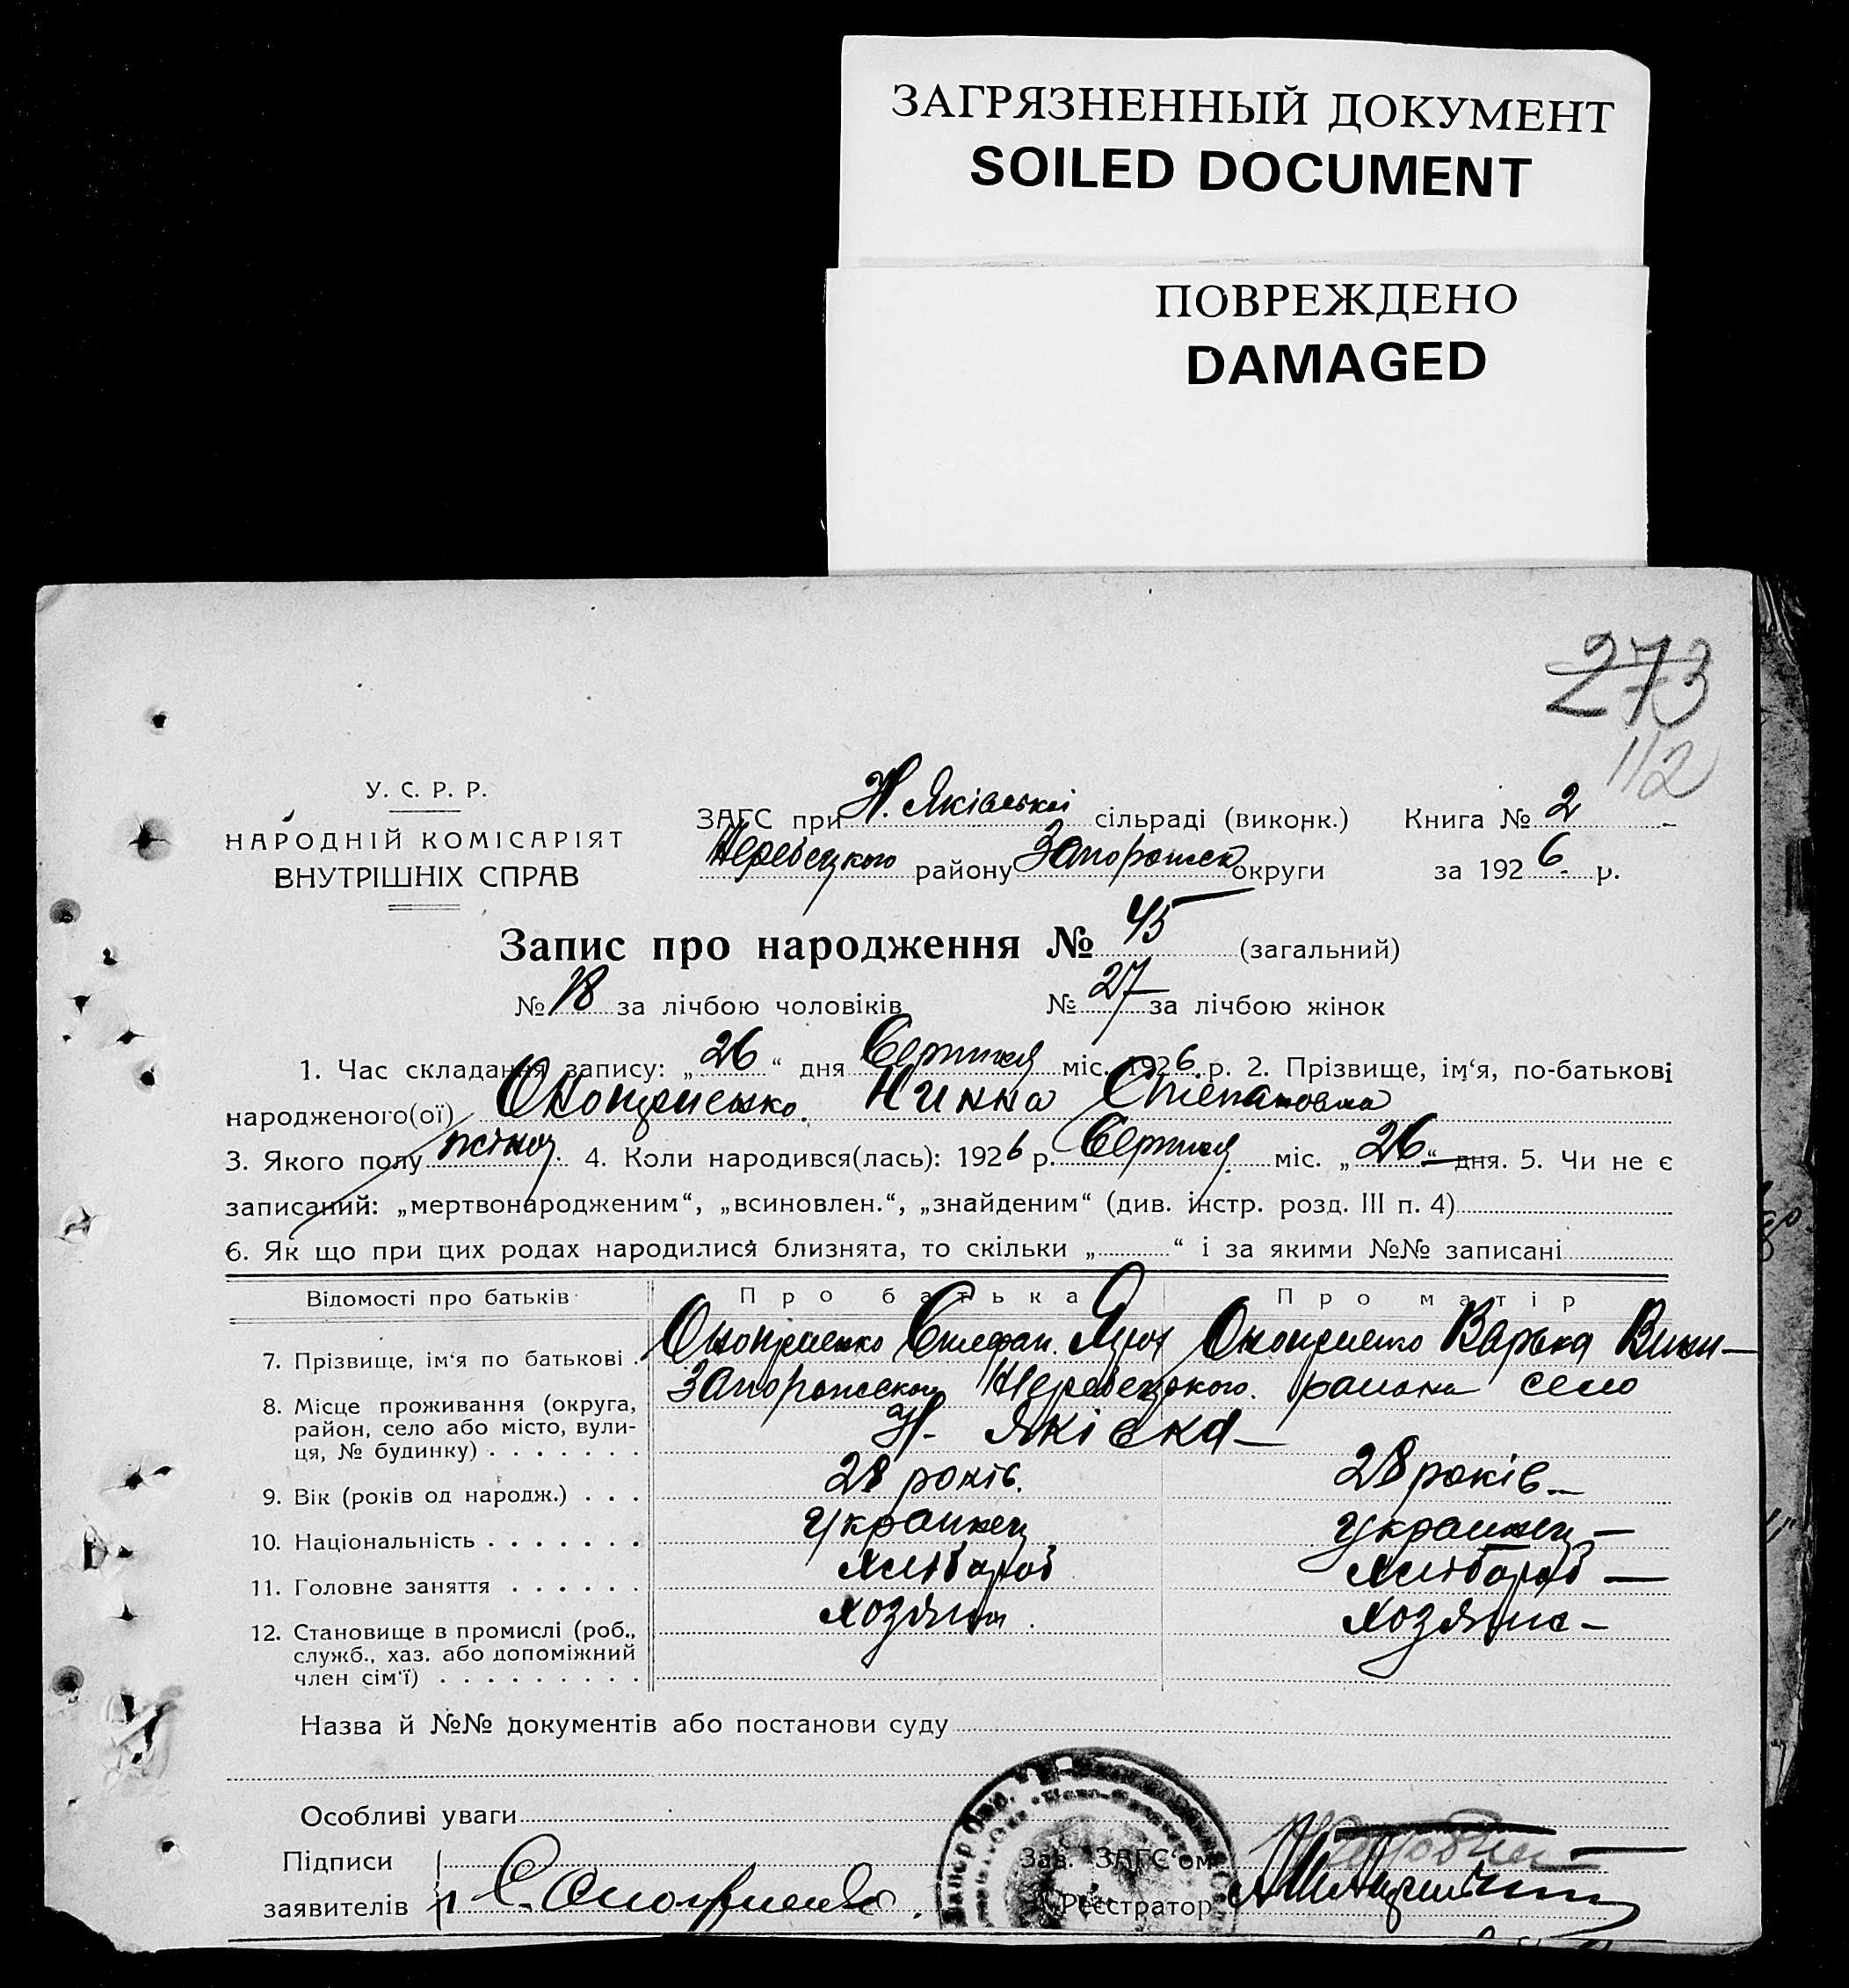 ЗАГРЯЗНЕННЫЙ ДОКУМЕНТ
SOILED DOCUMENT
ПОВРЕЖДЕНО
DAMAGED
273
112
У. С. Р. Р.
НАРОДНІЙ КОМІСАРІЯТ
ВНУТРІШНІХ СПРАВ
ЗАГС при Н. Яківській сільраді (виконк.) Книга № 2
Жеребецкого району Запорожск округи за 1926 р.
Запис про народження № 45 (загальний)
№ 18 за лічбою чоловіків № 27 за лічбою жінок
1. Час складання запису: „26“ дня Серпння міс. 1926 р. 2. Прізвище, ім‘я, по-батькові
народженого(ої) Оноприенко. Нинна Степановна
3. Якого полу жіноч. 4. Коли народився(лась): 1926 р. Серпня міс. „26“ дня. 5. Чи не є
записаний: „мертвонародженим“, „всиновлен.“, „знайденим“ (див. інстр. розд. III п. 4)
6. Як що при цих родах народилися близнята, то скільки „ “ і за якими №№ записані
Відомості про батьків Про батька Про матір
7. Прізвище, ім‘я по батькові . Оноприенко Стефан. Оноприенко Варька
8. Місце проживання (округа, Запорожского Жеребецкого. района село
район, село або місто, вули- Н. Яківка
ця, № будинку) . . . . . . .
9. Вік (років од народж.) . . . 28 років. 28 років
10. Національність . . . . . . . Украинец Украинец
11. Головне заняття . . . . . . Хлібороб Хлібороб
12. Становище в промислі (роб., хозяин. хозяика
служб., хаз. або допоміжний
член сім‘ї) . . . . . . . . .
Назва й №№ документів або постанови суду
Особливі уваги
Підписи Зав. ЗАГС‘ом
заявителів С. Оноприенко. Реєстратор